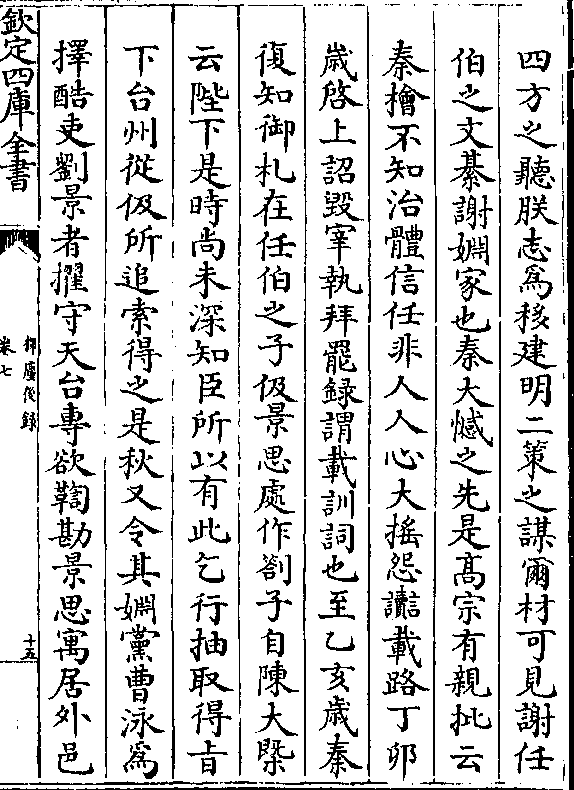 四方之聽朕志爲移建明二策之謀爾材可見謝任
伯之文綦謝婣家也秦大憾之先是髙宗有親批云
秦檜不知治體信任非人人心大搖怨讟載路丁卯
歲啓上詔毀宰執拜罷録謂載訓詞也至乙亥歲秦
復知御札在任伯之子伋景思處作劄子自陳大槩
云陛下是時尚未深知臣所以有此乞行抽取得㫖
下台州從伋所追索得之是秋又令其婣黨曹泳爲
擇酷吏劉景者擢守天台專欲鞫勘景思寓居外邑
欽定四庫全書
揮麈後録
卷七
十五